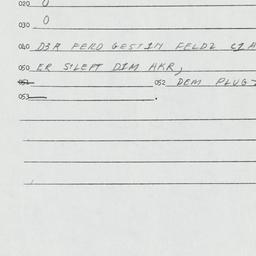 020 0
030 0
040 DER PERD GESTIN FELDZ
050 ER SILEPT DIM AKR,
051 052 DEM PLUG
053 .